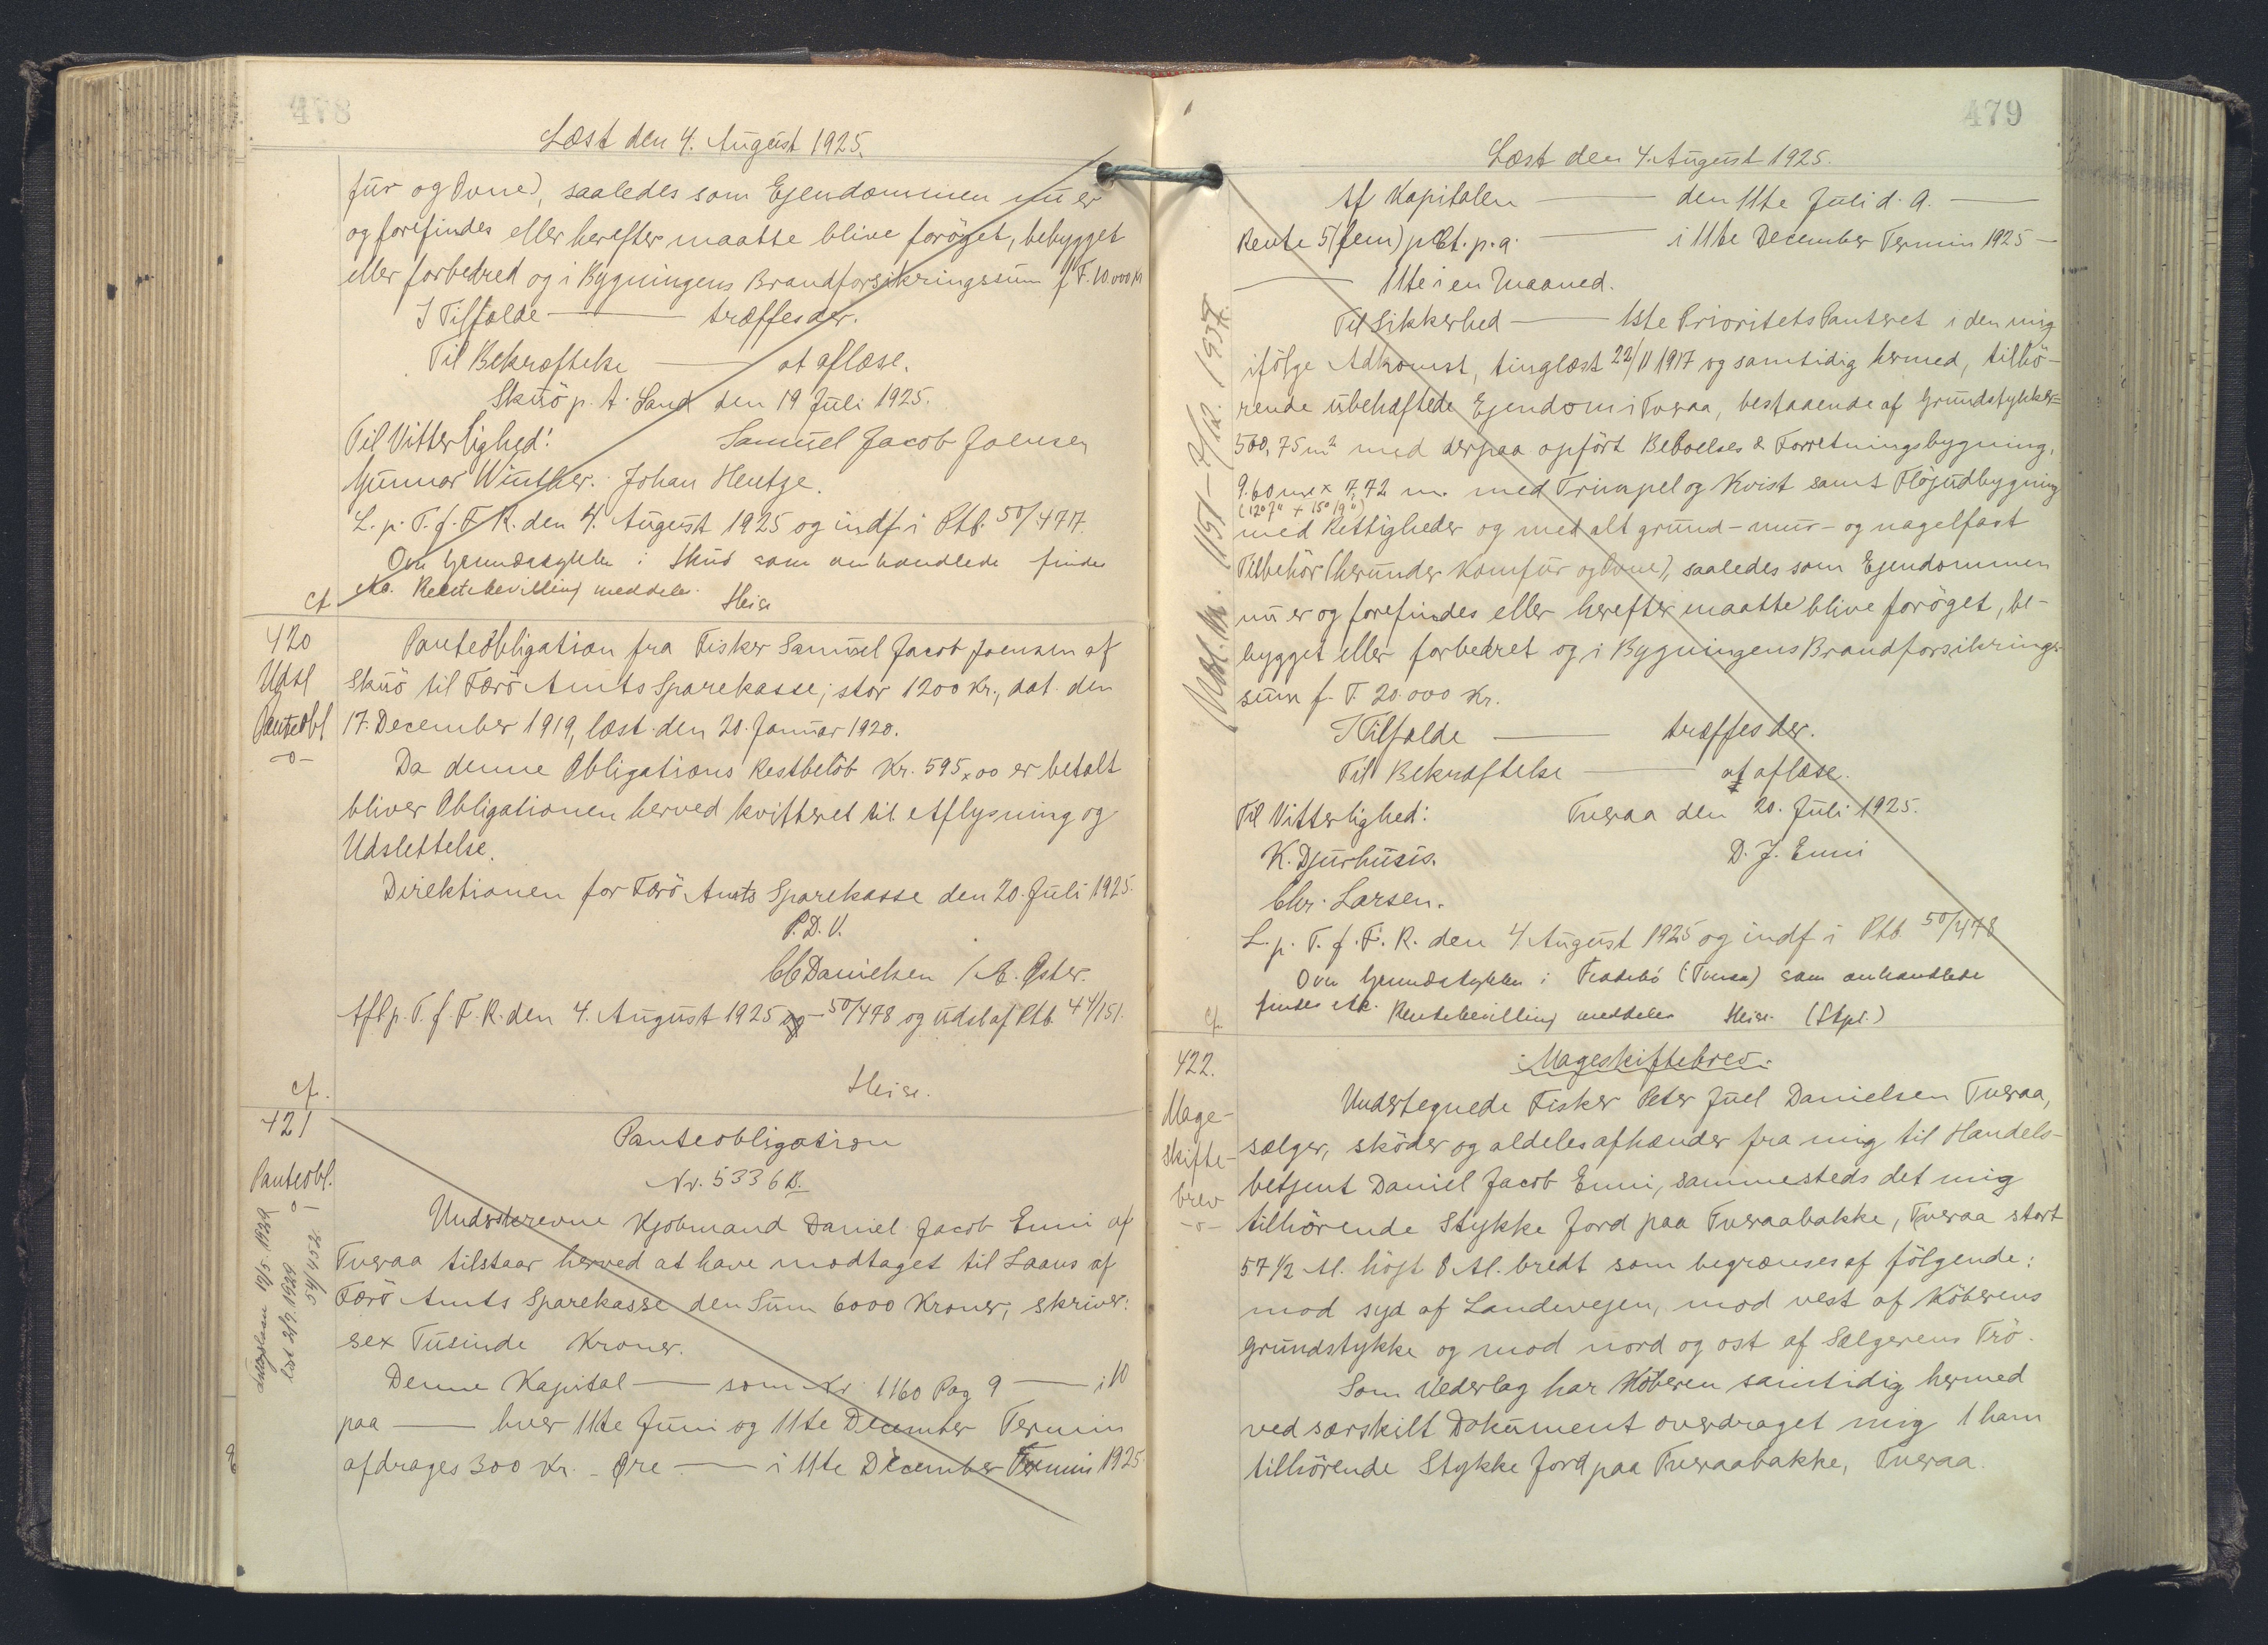 478
Læst den 4. August 1925.
für og Ovne), saaledes som Ejendommen nu er
og forefindes eller herefter maatte blive forøget, bebygget
eller forbedred og i Bygningens Brandforsikringssum f T. 10.000 Kr
I Tilfælde — træffes der.
Til Bekræftelse — at aflæse.
Skuö p. t. Sand den 19 Juli 1925.
Til Vitterlighed: Samuel Jacob Joensen
Gunnar Winther. Johan Hentze.
L. p. T. f. F. R. den 4. August 1925 og indf. i Ptb. 50/477.
Over Grundstykke i Skuö som omhandlede findes
Rentebevilling meddeles. Heise
Cf.
420
Udsl
Panteobl
-o-
Panteobligation fra Fisker Samuel Jacob Joensen af
Skuö til Færö Amts Sparekasse; stor 1200 Kr., dat. den
17. December 1919, læst den 20. Januar 1920.
Da denne Obligations Restbeløb Kr. 595,00 er betalt
bliver Obligationen herved kvitteret til Aflysning og
Udslettelse.
Direktionen for Færö Amts Sparekasse den 20. Juli 1925.
P. D. V.
CC Danielsen / A. Øster.
Afl p. T. f. F. R. den 4. August 1925 50/478 og udsl af Ptb. 44/151.
Heise.
Cf.
421
Panteobl.
-o-
læst 1929
54/452.
Panteobligation
Nr. 5336 B.
Underskrevne Kjøbmand Daniel Jacob Enni af
Tveraa tilstaar herved at have modtaget til Laans af
Færö Amts Sparekasse den Sum 6000 Kroner, skriver:
sex Tusinde Kroner.
Denne Kapital — som Nr 1160 Pag 9 — i 10
paa — hver 11te Juni og 11te December Termin
afdrages 300 Kr. - Øre — i 11te December Termin 1925
479
Læst den 4. August 1925.
Af Kapitalen — den 11te Juli d. A. —
Rente 5 (fem) pCt. p. a. — i 11te December Termin 1925 —
— 11te i en Maaned.
Til Sikkerhed — 1ste Prioritets Panteret i den mig
ifølge Adkomst, tinglæst 22/11 1917 og samtidig hermed, tilhö-
rende ubehæftede Ejendom i Tveraa, bestaaende af Grundstykker=
500,75 m² med derpaa opfört Beboelses & Forretningsbygning,
9.60 m × 7,72 m. med Trimpel og Kvist samt Fløjudbygning
med Rettigheder og med alt grund-mur- og nagelfast
Tilbehör (herunder Komfür og Ovne), saaledes som Ejendommen
nu er og forefindes eller herefter maatte blive forøget, be-
bygget eller forbedret og i Bygningens Brandforsikrings-
sum f. T. 20.000 Kr.
I Tilfælde — træffes der.
Til Bekræftelse — at aflæse.
Til Vitterlighed: Tveraa den 20. Juli 1925.
K. Djurhuus. D. J. Enni
Chr. Larsen.
L. p. T. f. F. R. den 4 August 1925 og indf i Ptb. 50/478
Over Grundstykker i (Tveraa) som omhandlede
findes Rentebevilling meddeles Heise. (Stpl.)
Cf.
422.
Mage-
skifte-
brev
-o-
Mageskiftebrev.
Undertegnede Fisker Peter Juel Danielsen Tveraa,
sælger, sköder og aldeles afhænder fra mig til Handels-
betjent Daniel Jacob Enni, sammesteds det mig
tilhörende Stykke Jord paa Tveraabakke, Tveraa stort
57 1/2 Al. höjt 8 Al. bredt som begrænses af fölgende:
mod syd af Landevejen, mod vest af Köberens
Grundstykke og mod nord og ost af Sælgerens Trö.
Som Vederlag har Köberen samtidig hermed
ved særskilt Dokument overdraget mig 1 ham
tilhörende Stykke Jord paa Tveraabakke, Tveraa.